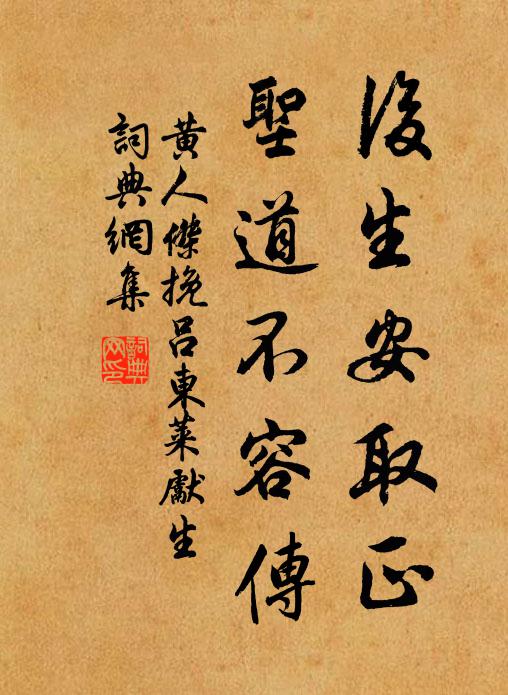 後生安取正
聖道不容傳
黃人傑挽呂東萊獻生
詞典網集
詞典網印